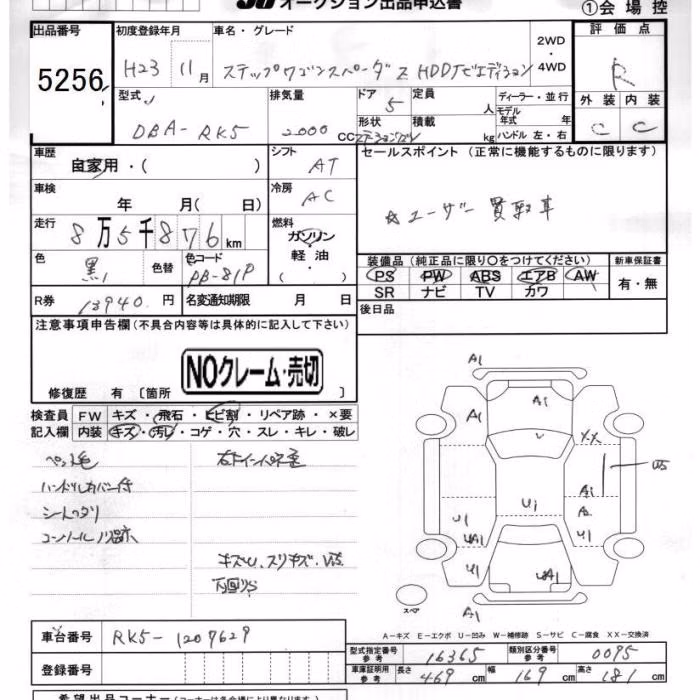 オークション出品申込書
①会場控
出品番号 初度登録年月 車名・グレード 評価点
5256 H23 11月 ステップワゴンスパーダ Z HDDナビエディション 2WD・4WD R
型式 排気量 ドア 5 定員 人 ディーラー・並行 外装 内装
DBA-RK5 2000 CC 形状 ステーションワゴン 積載 kg モデル年式 年 ハンドル 左・右 C C
車歴 自家用・( ) シフト AT セールスポイント (正常に機能するものに限ります)
車検 年 月( 日) 冷房 AC ☆ユーザー買取車
走行 8万5千876km 燃料 ガソリン 軽油・( )
色 黒 色替 色コード PB-81P 装備品 (純正品に限り○をつけてください) 新車保証書
PS PW ABS エアB AW 有・無
SR ナビ TV カワ
R券 13940円 名変通知期限 月 日 後日品
注意事項申告欄 (不具合内容等は具体的に記入して下さい)
NOクレーム・売切
修復歴 有 〔箇所 〕
検査員 FW キズ・飛石・ヒビ割・リペア跡・×要
記入欄 内装 キズ・汚レ・コゲ・穴・スレ・キレ・破レ
ペット毛
ハンドルカバー付
シートヘタリ
キズU、スリキズ、U5
下回りS
A1
A1 A1
V XX
U5
A1
U1 U1 A2
UA1 U1
U1 UA1
スペア
A1
A-キズ E-エクボ U-凹み W-補修跡 S-サビ C-腐食 XX-交換済
車台番号 RK5-1207629
型式指定番号 参考 16365 類別区分番号 参考 0095
登録番号 車庫証明用 参考 長さ 469cm 幅 169cm 高さ 181cm
希望出品コーナー (コーナーは各会場により異なります)